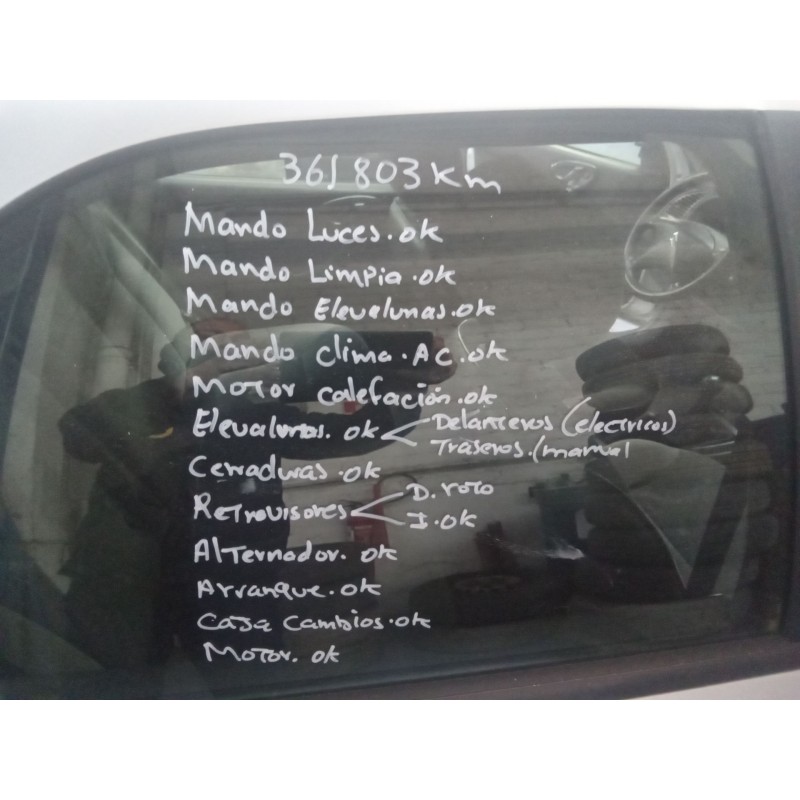 361803 Km
Mando Luces.ok
Mando Limpia.ok
Mando Elevalunas.ok
Mando clima.AC.ok
Motor calefación.ok
Elevalunas. ok < Delanteros (electricos)
Traseros./manual
Cerraduras.ok
Retrovisores < D. roto
I.ok
Alternador. ok
Arranque.ok
Caja Cambios.ok
Motor. ok